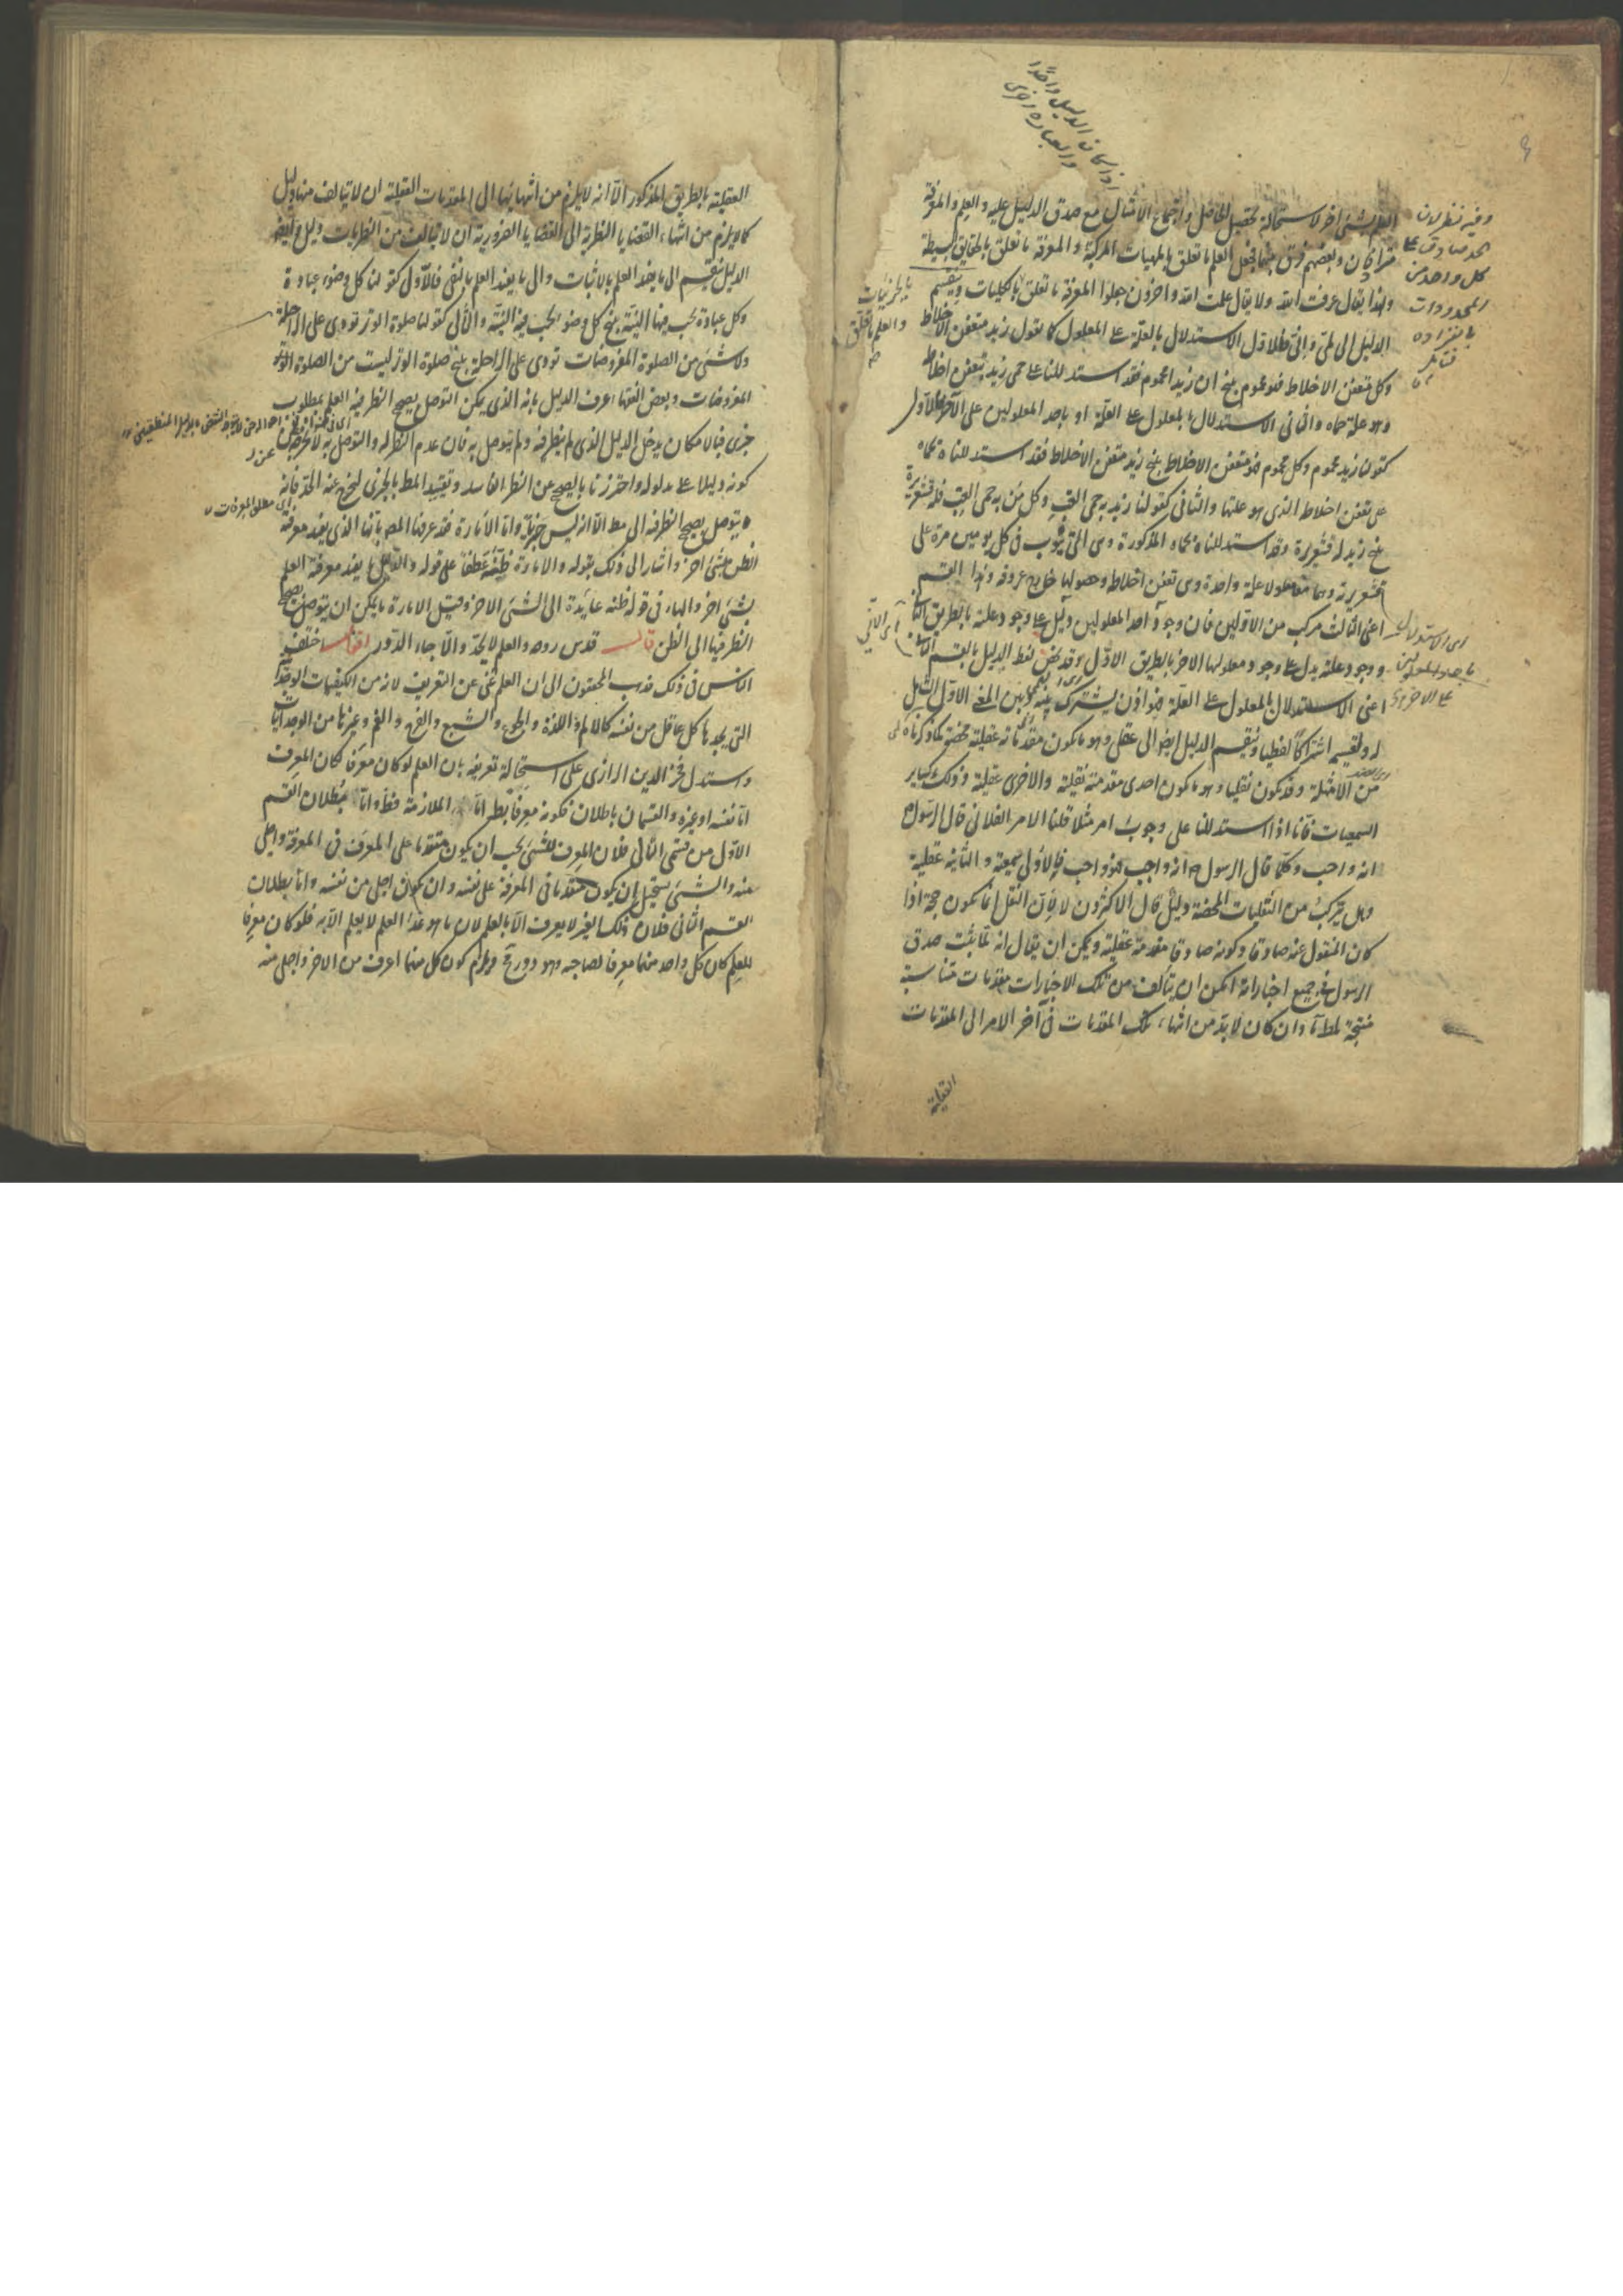 العلم بشئ اخر لاستحالة تحصيل الحاصل واجتماع الامثال مع صدق الدليل عليه والعلم والمعرفة
مترادفان وبعضهم فرق بينهما فجعل العلم ما تعلق بالمهيات المركبة والمعرفة ما تعلق بالحقايق البسيطة
ولهذا يقال عرفت الله ولا يقال علمت الله واخرون جعلوا المعرفة ما تعلق بالكليات وينقسم
الدليل الى لمي واني فالاول الاستدلال بالعلة على المعلول كما تقول زيد متعفن الاخلاط
وكل متعفن الاخلاط فهو محموم ينتج ان زيدا محموم فقد استدللنا على حمى زيد بتعفن اخلاط
وهو علة حماه والثاني الاستدلال بالمعلول على العلة او باحد المعلولين على الاخر فالاول
كقولنا زيد محموم وكل محموم فهو متعفن الاخلاط ينتج زيد متعفن الاخلاط فقد استدللنا بحماه
على تعفن اخلاط الذي هو علتها والثاني كقولنا زيد به حمى الغب وكل من به حمى الغب فله قشعريرة
ينتج زيد له قشعريرة وقد استدللنا بحماه المذكورة وهي التي تنوب في كل يومين مرة على
قشعريرته وهما معلولا علة واحدة وهي تعفن اخلاط وحصولها خارج عروقه وهذا القسم
اعني الثالث مركب من الاولين فان وجود احد المعلولين دليل على وجود علته بالطريق الثاني
ووجود علته يدل على وجود معلولها الاخر بالطريق الاول وقد يخص لفظ الدليل بالقسم الثاني
اعني الاستدلال بالمعلول على العلة فهو اذن يشترك بينه وبين المعنى الاول الشامل
له ولقسيمه اشتراكا لفظيا وينقسم الدليل ايضا الى عقلي وهو ما يكون مقدماته عقلية محضة كما ذكرناه
من الامثلة وقد يكون نقليا وهو ما يكون احدى مقدمتيه نقلية والاخرى عقلية وذلك كساير
السمعيات فانا اذا استدللنا على وجوب امر مثلا قلنا الامر الفلاني قال الرسول
انه واجب وكلما قال الرسول انه واجب فهو واجب فالاولى سمعية والثانية عقلية
وهل يتركب من النقليات المحضة دليل قال الاكثرون لا لان النقل انما يكون حجة اذا
كان المنقول عنه صادقا وكونه صادقا مقدمة عقلية ويمكن ان يقال انه لما ثبت صدق
الرسول في جميع اخباراته امكن ان يتالف من تلك الاخبارات مقدمات متناسبة
منتجة لمط وان كان لا بد من انتهاء تلك المقدمات في آخر الامر الى المقدمات
العقلية
وفيه نظر لان
الحد صادق على
كل واحد من
المحدودات
بانفراده
فتامل
بالجزئيات
والعلم ما تعلق
اى الاستدلال
باحد المعلولين
على الاخر
العقلية بالطريق المذكور الا انه لا يلزم من انتهائها الى المقدمات العقلية ان لا يتالف منها دليل
كما لا يلزم من انتهاء القضايا النظرية الى القضايا الضرورية ان لا يتالف من النظريات دليل وايضا
الدليل ينقسم الى ما يفيد العلم بالاثبات والى ما يفيد العلم بالنفي فالاول كقولنا كل وضوء عبادة
وكل عبادة يجب فيها النية ينتج كل وضوء يجب فيه النية والثاني كقولنا صلوة الوتر تؤدى على الراحلة
ولا شئ من الصلوة المفروضات تؤدى على الراحلة ينتج صلوة الوتر ليست من الصلوة
المفروضات وبعض الفقهاء عرف الدليل بانه الذي يمكن التوصل بصحيح النظر فيه الى العلم بمطلوب
جزئ فبالامكان يدخل الدليل الذي لم ينظر فيه ولم يتوصل به فان عدم النظر له والتوصل به لا يخرجه عن
كونه دليلا على مدلوله واحترزنا بالصحيح عن النظر الفاسد وتقييد المط بالجزئ ليخرج عنه الحد فانه
يتوصل بصحيح النظر فيه الى مط الا انه ليس جزئيا واما الامارة فقد عرفها المص بانها الذي يفيد معرفته
الظن بشئ اخر واشار الى ذلك بقوله والامارة ظنه عطفا على قوله والدليل ما يفيد معرفته العلم
بشئ اخر والهاء في قوله ظنه عايدة الى الشئ الاخر وقيل الامارة ما يمكن ان يتوصل بصحيح
النظر فيها الى الظن قال قدس روحه والعلم لا يحد والا جاء الدور اقول اختلف
الناس في ذلك فذهب المحققون الى ان العلم غني عن التعريف لانه من الكيفيات الوجدانية
التي يجدها كل عاقل من نفسه كالالم واللذة والجوع والشبع والفرح والغم وغيرها من الوجدانيات
واستدل فخر الدين الرازي على استحالة تعريفه بان العلم لو كان معرفا لكان المعرف
اما نفسه او غيره والقسمان باطلان فكونه معرفا بط اما الملازمة فظ واما بطلان القسم
الاول من قسمى التالي فلان المعرف للشئ يجب ان يكون متقدما على المعرف في المعرفة واجلى
منه والشئ يستحيل ان يكون متقدما في المعرفة على نفسه وان يكون اجلى من نفسه واما بطلان
القسم الثاني فلان ذلك الغير لا يعرف الا بالعلم لان ما هو غير العلم لا يعلم الا به فلو كان معرفا
للعلم كان كل واحد منهما معرفا لصاحبه وهو دور مح ويلزم كون كل منهما اعرف من الاخر واجلى منه